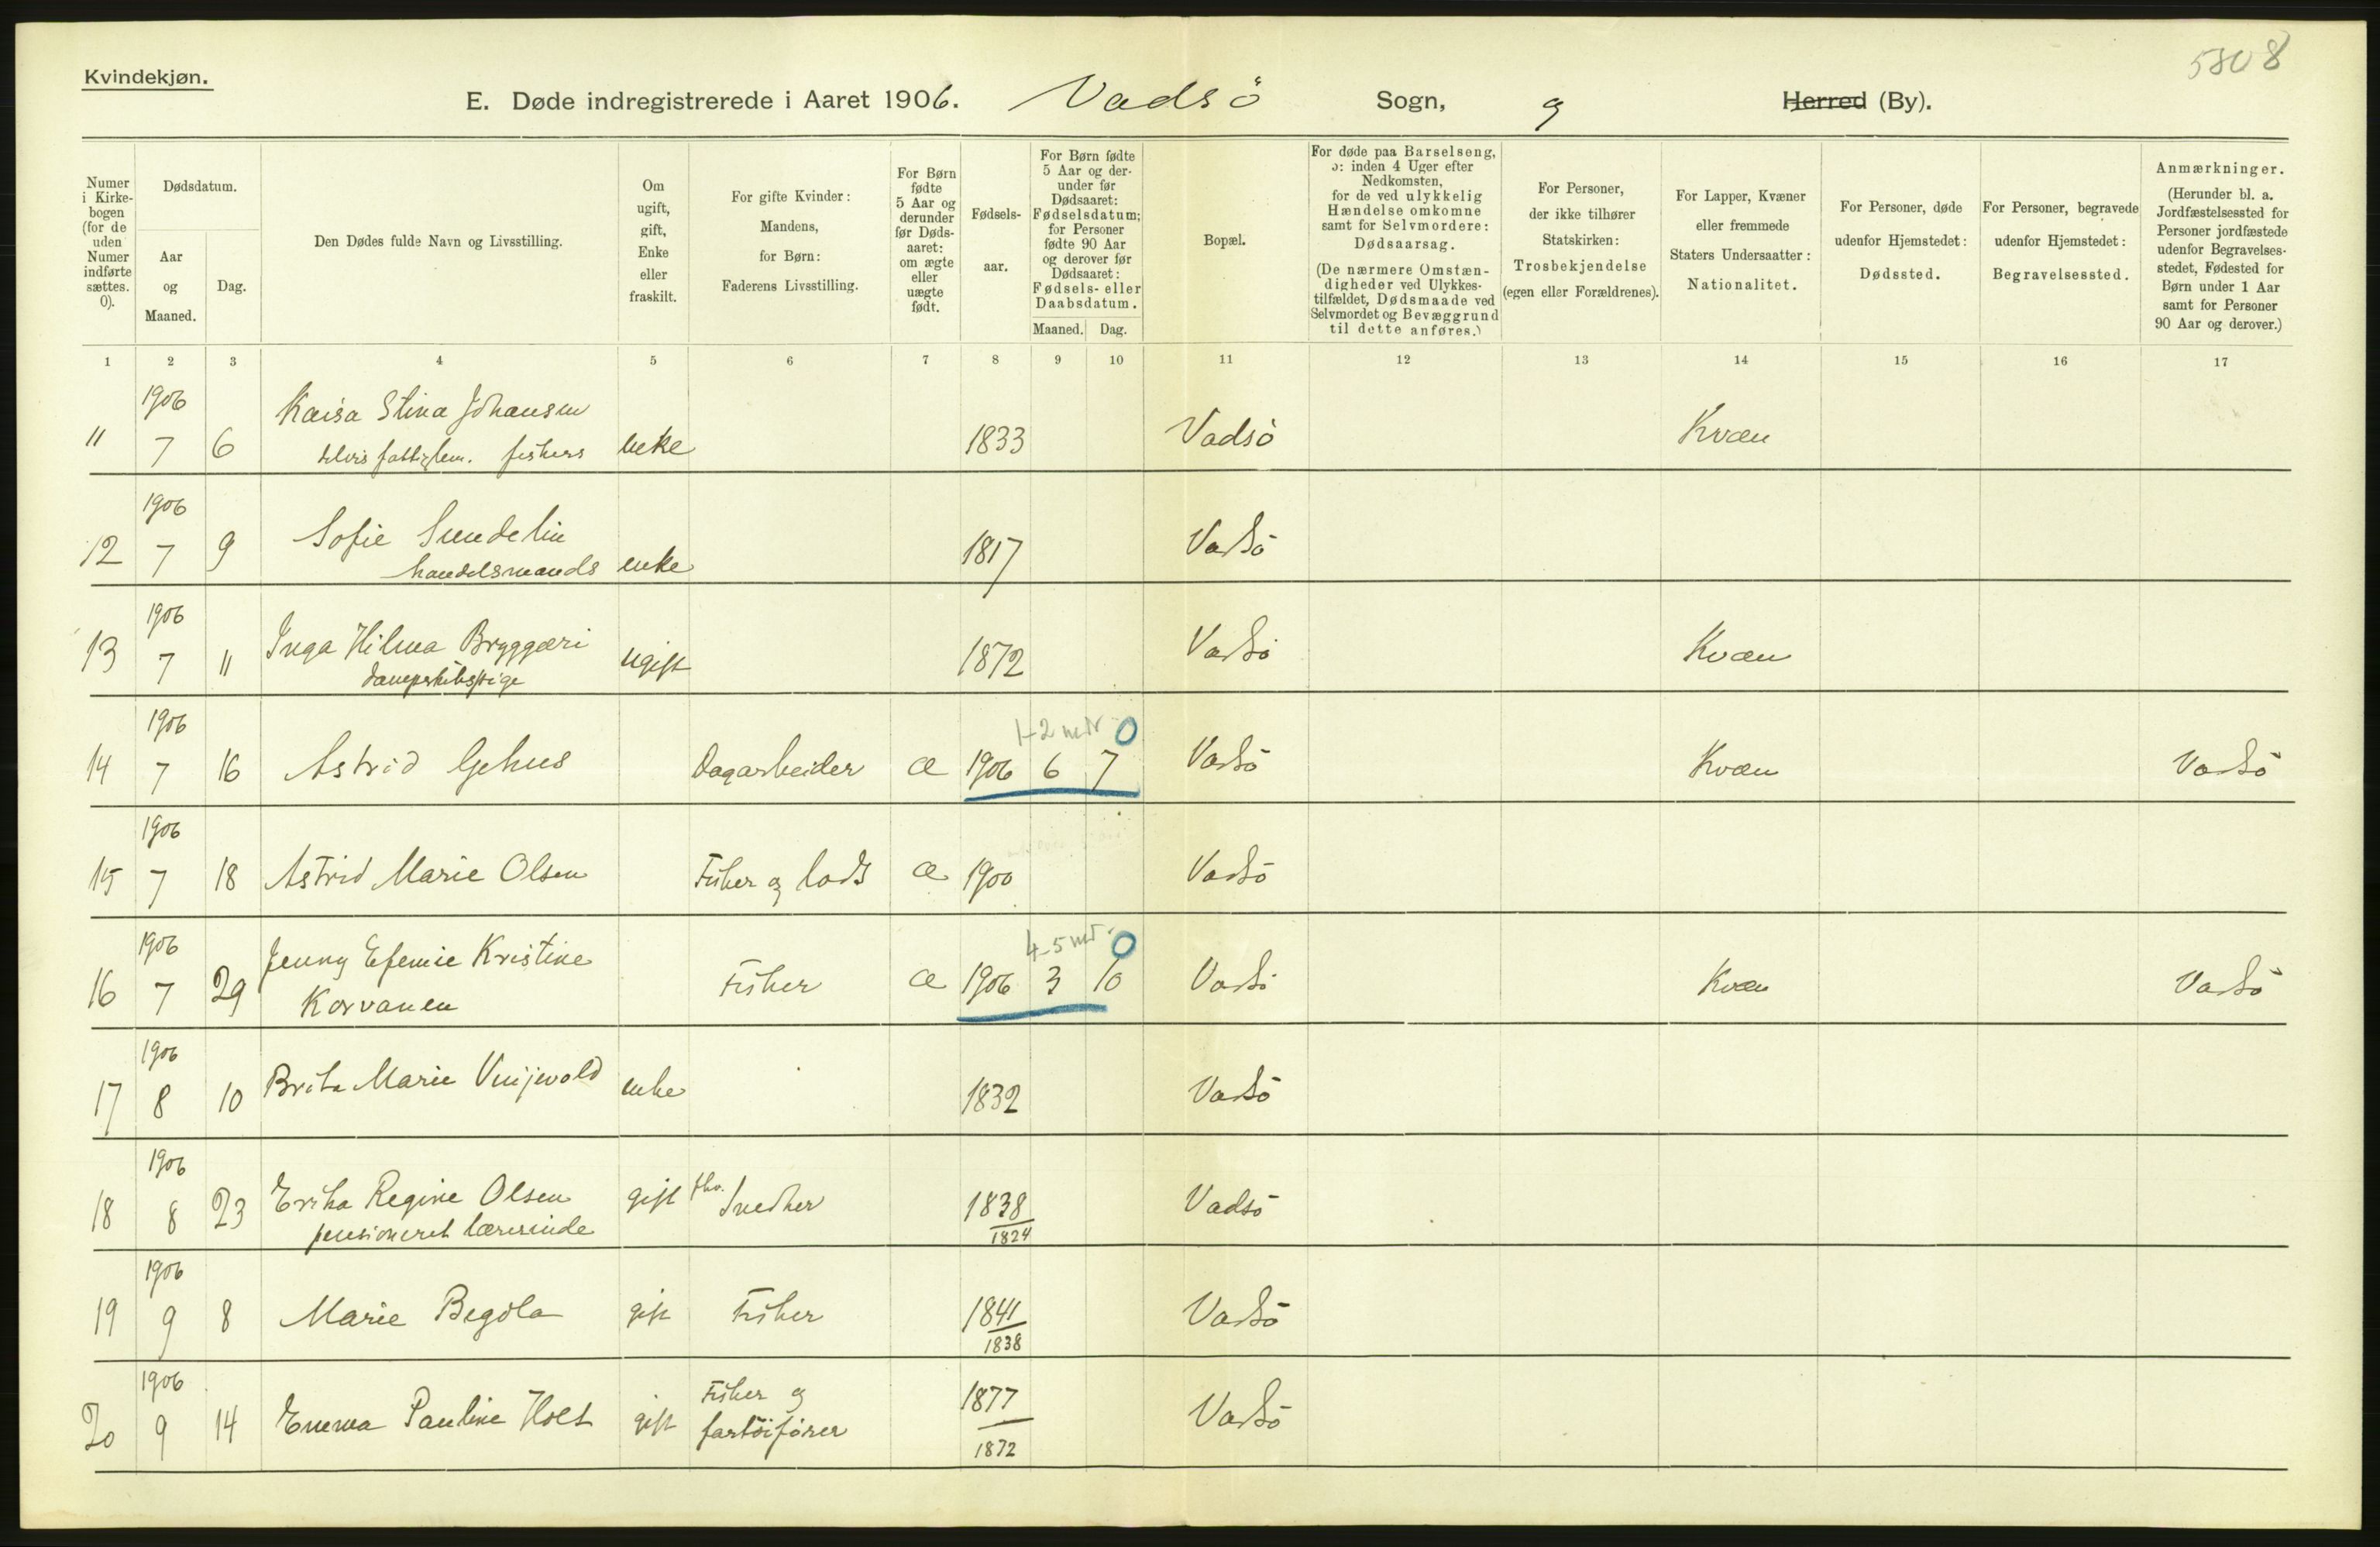 5808
Kvindekjøn.
E. Døde indregistrerede i Aaret 1906. Vadsö Sogn, og Herred (By).
Numer i Kirkebogen (for de uden Numer indførte sættes. 0).
Dødsdatum.
Aar og Maaned.
Dag.
Den Dødes fulde Navn og Livsstilling.
Om ugift, gift, Enke eller fraskilt.
For gifte Kvinder: Mandens, for Børn: Faderens Livsstilling.
For Børn fødte 5 Aar og derunder før Dødsaaret: om ægte eller uægte født.
Fødselsaar.
For Børn fødte 5 Aar og derunder før Dødsaaret: Fødselsdatum; for Personer fødte 90 Aar og derover før Dødsaaret: Fødsels- eller Daabsdatum.
Maaned. Dag.
Bopæl.
For døde paa Barselseng, ɔ: inden 4 Uger efter Nedkomsten, for de ved ulykkelig Hændelse omkomne samt for Selvmordere: Dødsaarsag.
(De nærmere Omstændigheder ved Ulykkestilfældet, Dødsmaade ved Selvmordet og Bevæggrund til dette anføres.)
For Personer, der ikke tilhører Statskirken: Trosbekjendelse (egen eller Forældrenes).
For Lapper, Kvæner eller fremmede Staters Undersaatter: Nationalitet.
For Personer, døde udenfor Hjemstedet: Dødssted.
For Personer, begravede udenfor Hjemstedet: Begravelsessted.
Anmærkninger.
(Herunder bl. a. Jordfæstelsessted for Personer jordfæstede udenfor Begravelsesstedet, Fødested for Børn under 1 Aar samt for Personer 90 Aar og derover.)
1 2 3 4 5 6 7 8 9 10 11 12 13 14 15 16 17
1906
Kaisa Stina Johansen
11 7 6 delvis fattiglem. fiskers enke 1833 Vadsö Kvæn
1906
Sofie Sundelin
12 7 9 handelsmands enke 1817 Vadsö
1906
Inga Hilma Bryggæri
13 7 11 dampskibspige ugift 1872 Vadsö Kvæn
1906 1-2 mdr 0
14 7 16 Astrid Gehus Dagarbeider æ 1906 6 7 Vadsö Kvæn Vadsö
1906
15 7 18 Astrid Marie Olsen Fisker og lods æ 1900 Vadsö
1906 4-5 mdr. 0
Jenny Efemie Kristine
16 7 29 Korvanen Fisker æ 1906 3 10 Vadsö Kvæn Vadsö
1906
17 8 10 Brita Marie enke 1832 Vadsö
1906
18 8 23 Erika Regine Olsen gift fhv. Snedker 1838 Vadsö
pensioneret lærerinde 1824
1906
19 9 8 Marie Begola gift Fisker 1841 Vadsö
1838
1906
Fisker og 1877
20 9 14 Emma Pauline Holst gift fartöifører Vadsö
1872